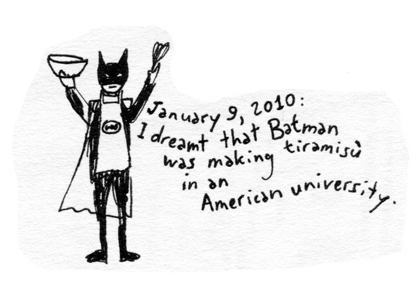 January 9, 2010:
I dreamt that Batman
was making tiramisù
in an
American university.